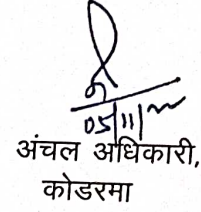 05/11/
अंचल अधिकारी,
कोडरमा